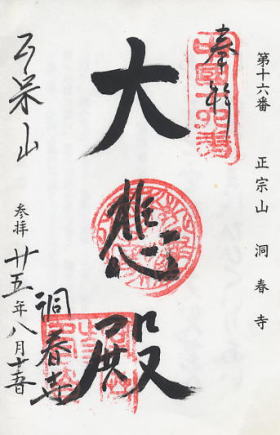 第十六番 正宗山 洞春寺
奉拝
中國十六番
大悲殿
洞春寺
正宗山
参拝 廿五年八月十五日